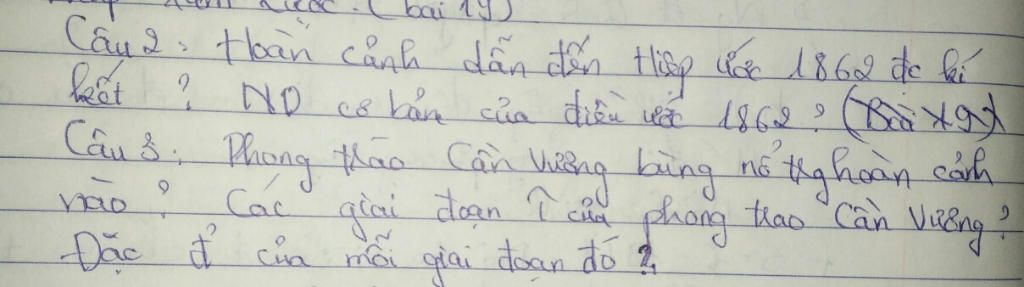 xâm lược. (bài 19)
Câu 2: Hoàn cảnh dẫn đến Hiệp ước 1862 đc kí
kết? ND cơ bản của điều ước 1862? (Bài 19)
Câu 3: Phong trào Cần Vương bùng nổ tg hoàn cảnh
nào? Các giai đoạn của phong trào Cần Vương?
Đặc đ' của mỗi giai đoạn đó?